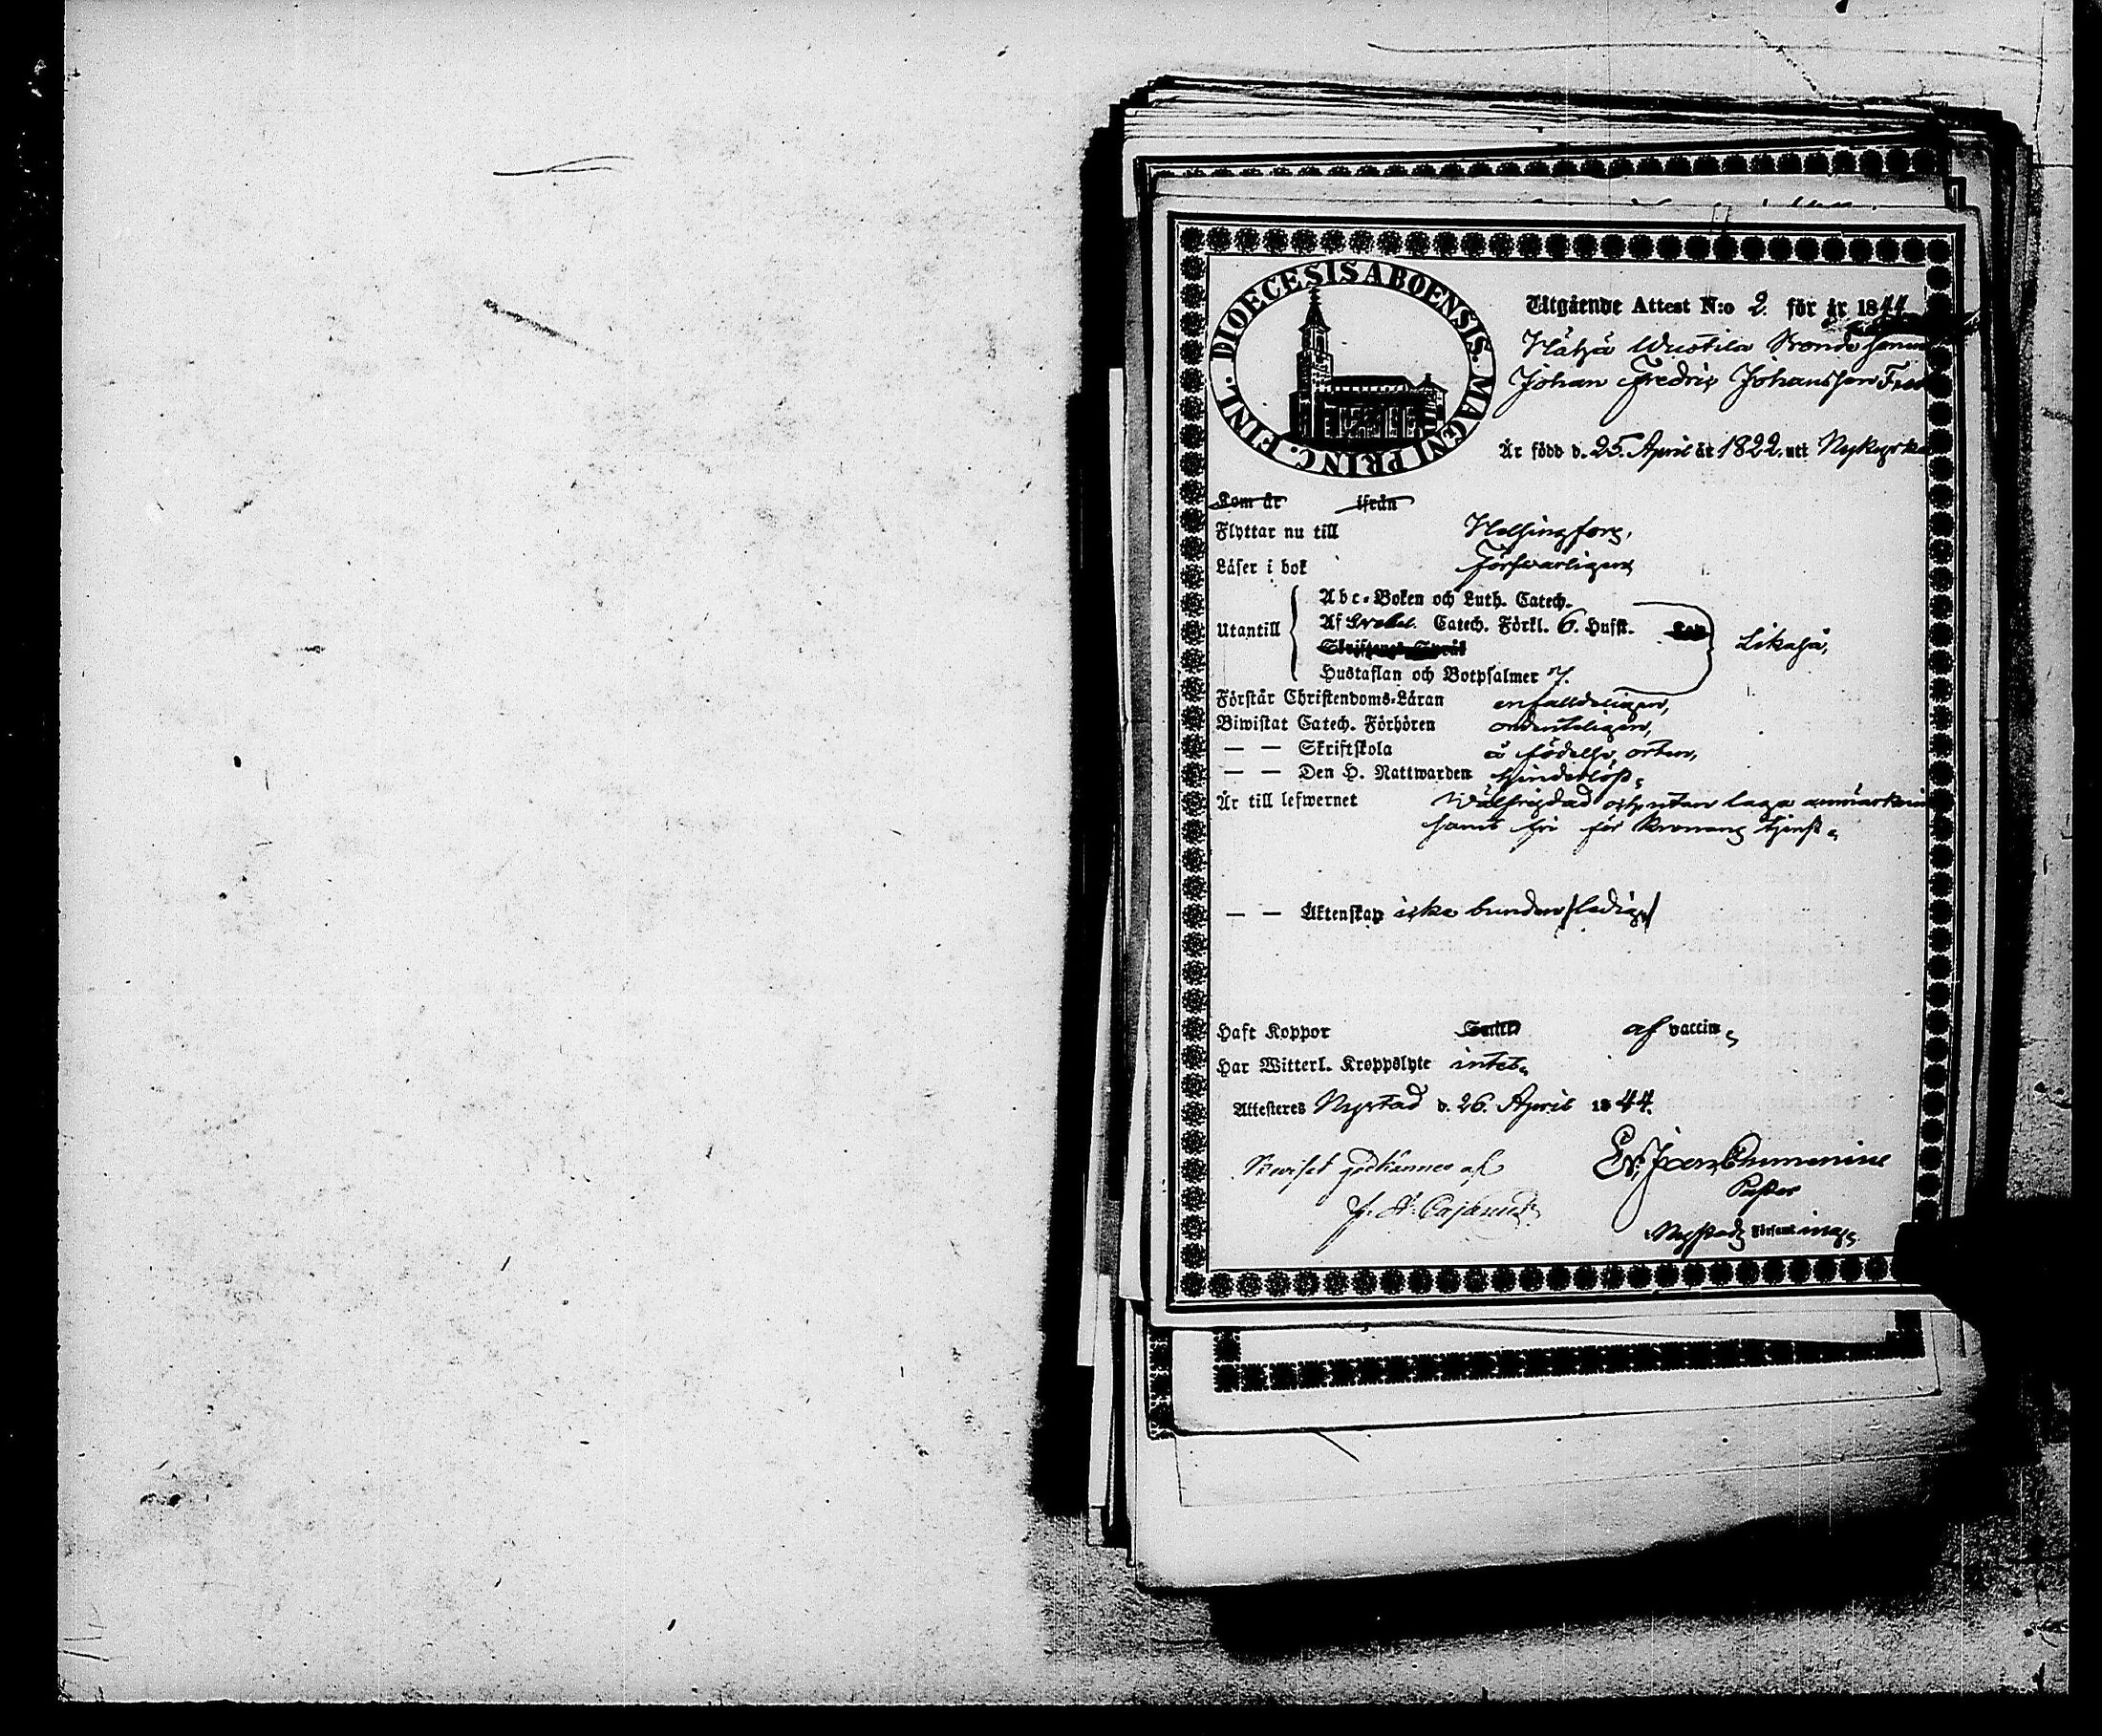 DIOECESIS ABOENSIS. MAGNI PRINC. FINL.
Utgående Attest N:o 2. för år 1844
Johan Fredric Johansson
Är född d. 25. April år 1822. uti Nykyrka
Kom år ifrån
Flyttar nu till Helsingfors,
Läser i bok Förswarligen
Utantill
Abc-Boken och Luth. Catech.
Af Catech. Förkl. 6. Hufst.
Skriftens Språk
Hustaflan och Botpsalmer 7.
Likaså,
Förstår Christendoms-Läran enfalldeligen,
Biwistat Catech. Förhören ordenteligen,
— — Skriftskola å födelse orten,
— — Den H. Nattwarden hinderlöst,
Är till lefwernet Wälfrejdad och utan laga anmärkning
samt fri för Kronans tjenst.
— — Äktenskap icke bunden (ledig)
Haft Koppor af vaccin,
Har Witterl. Kroppslyte intet.
Attesteres Nystad d. 26. April 1844.
Reviset godkännes af
Pastor
Nystads Församling.